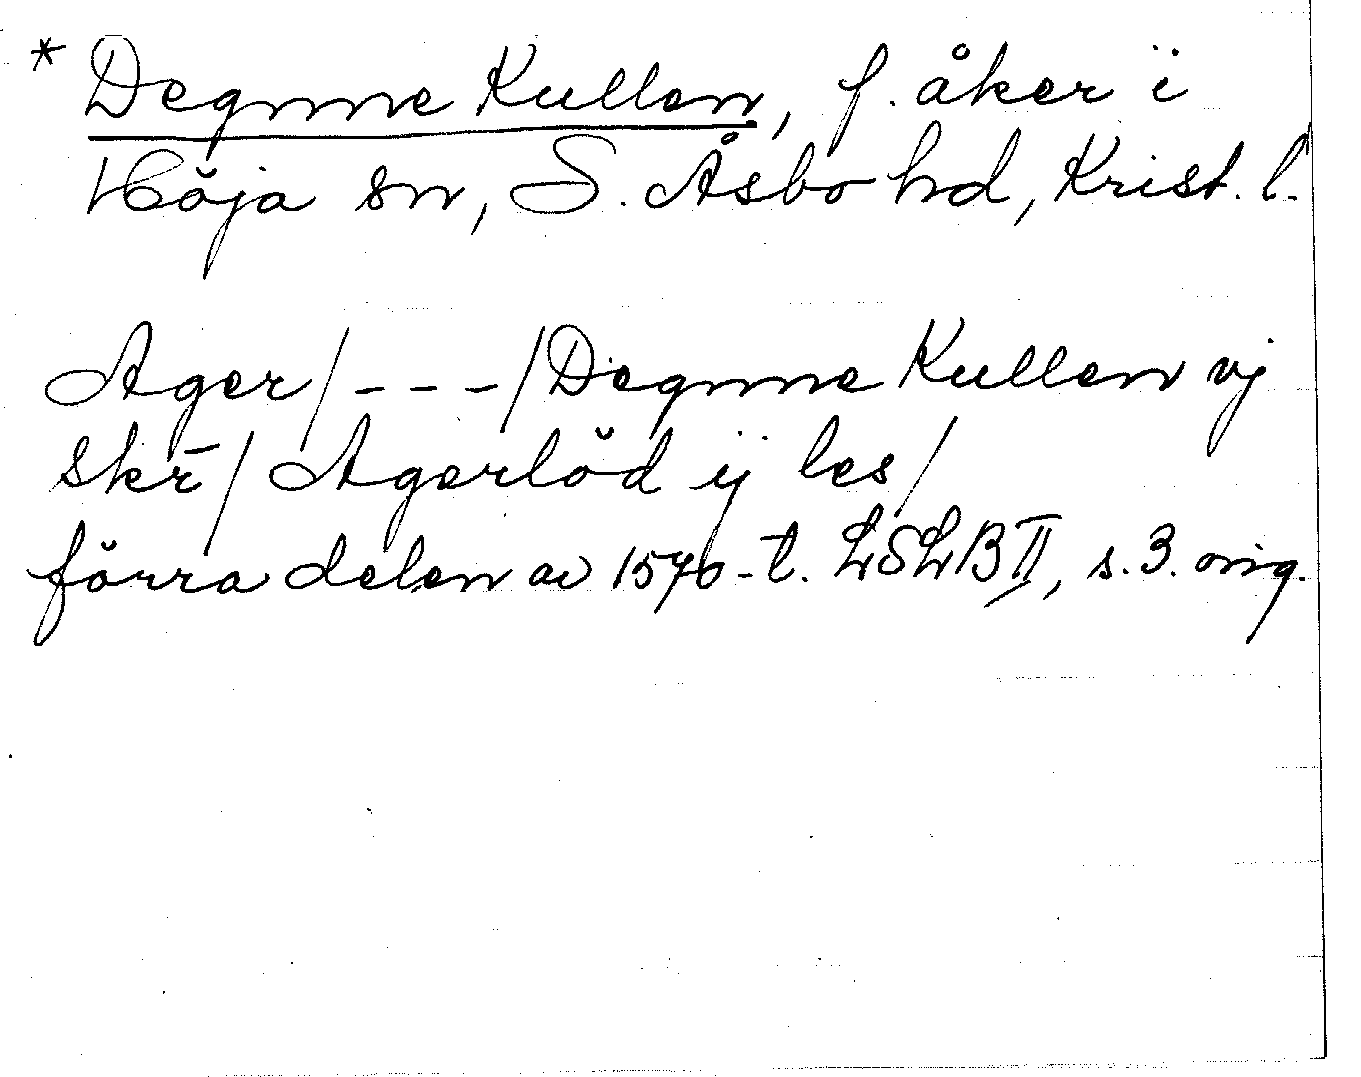 * Degnne Kullen, f. åker i
Höja sn, S. Åsbo hd, Krist. l.
Ager/---/Degnne Kullen vj
skr̄/ Agerlöd ij les/
förra delen av 1570-t. LSLB II, s. 3. orig.